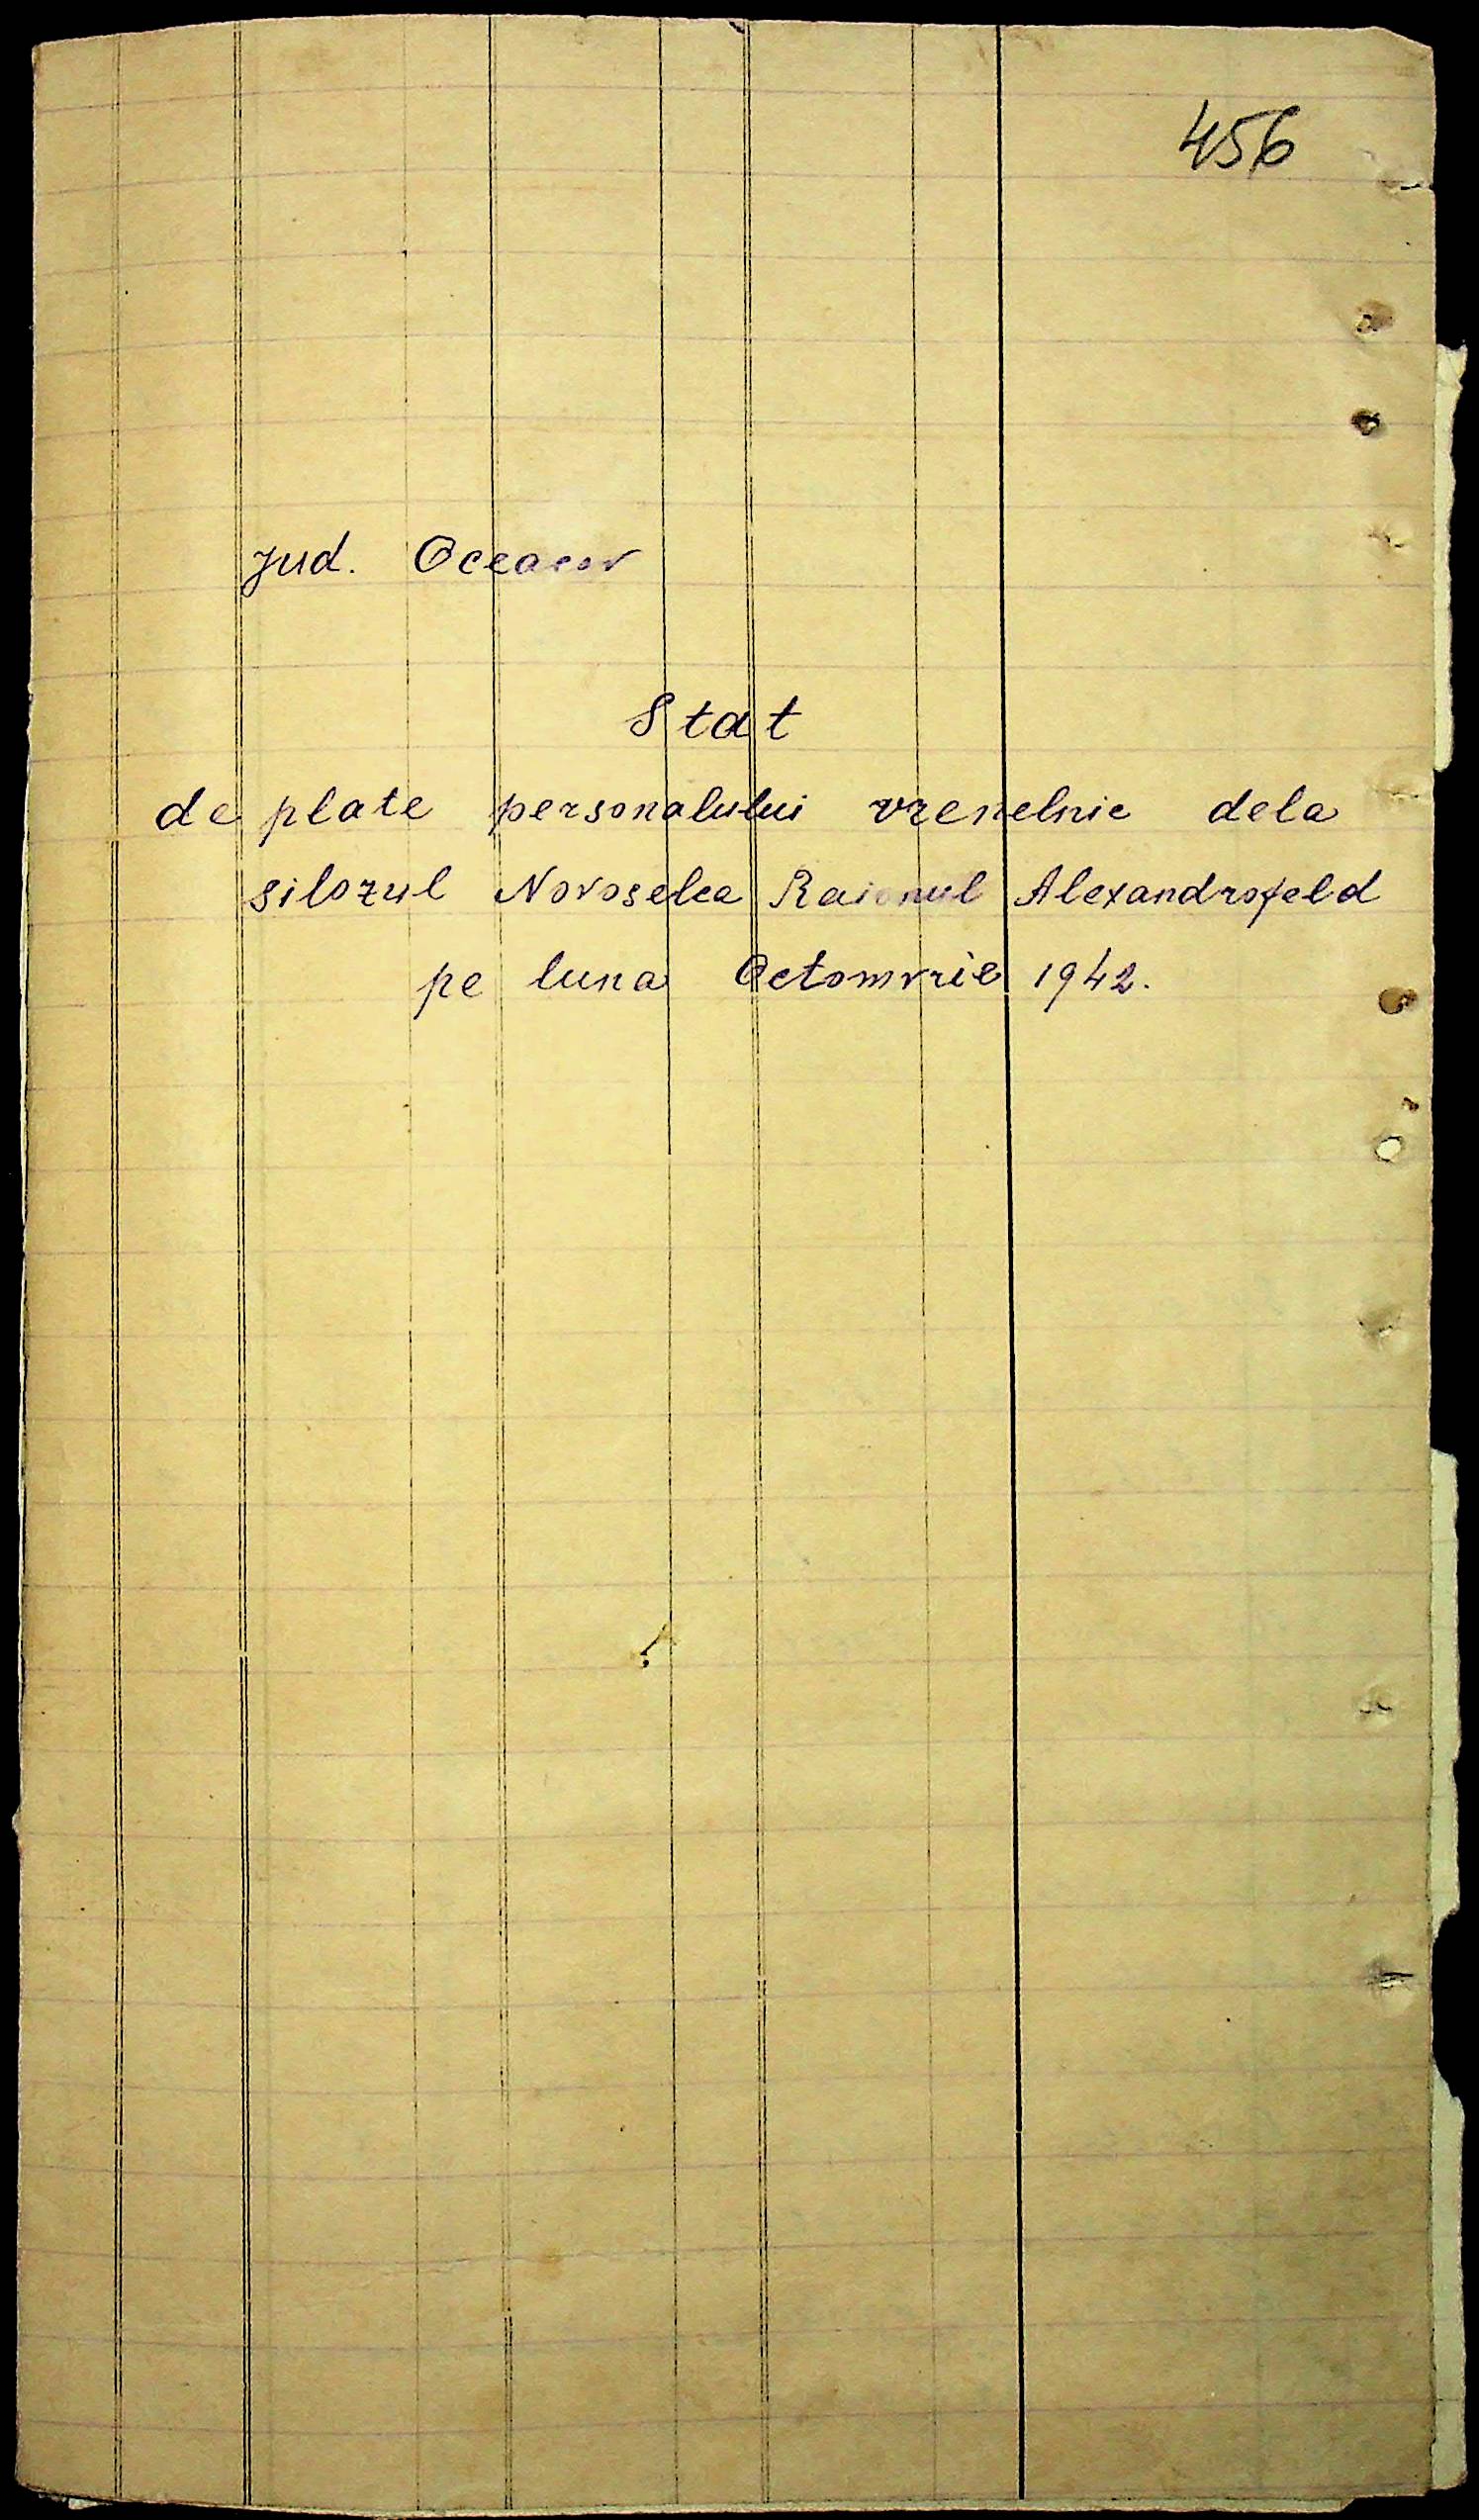 456
Jud. Oceacov
Stat
de plate personalului vremelnic dela
silozul Novoselca Raionul Alexandrofeld
pe luna Octomvrie 1942.